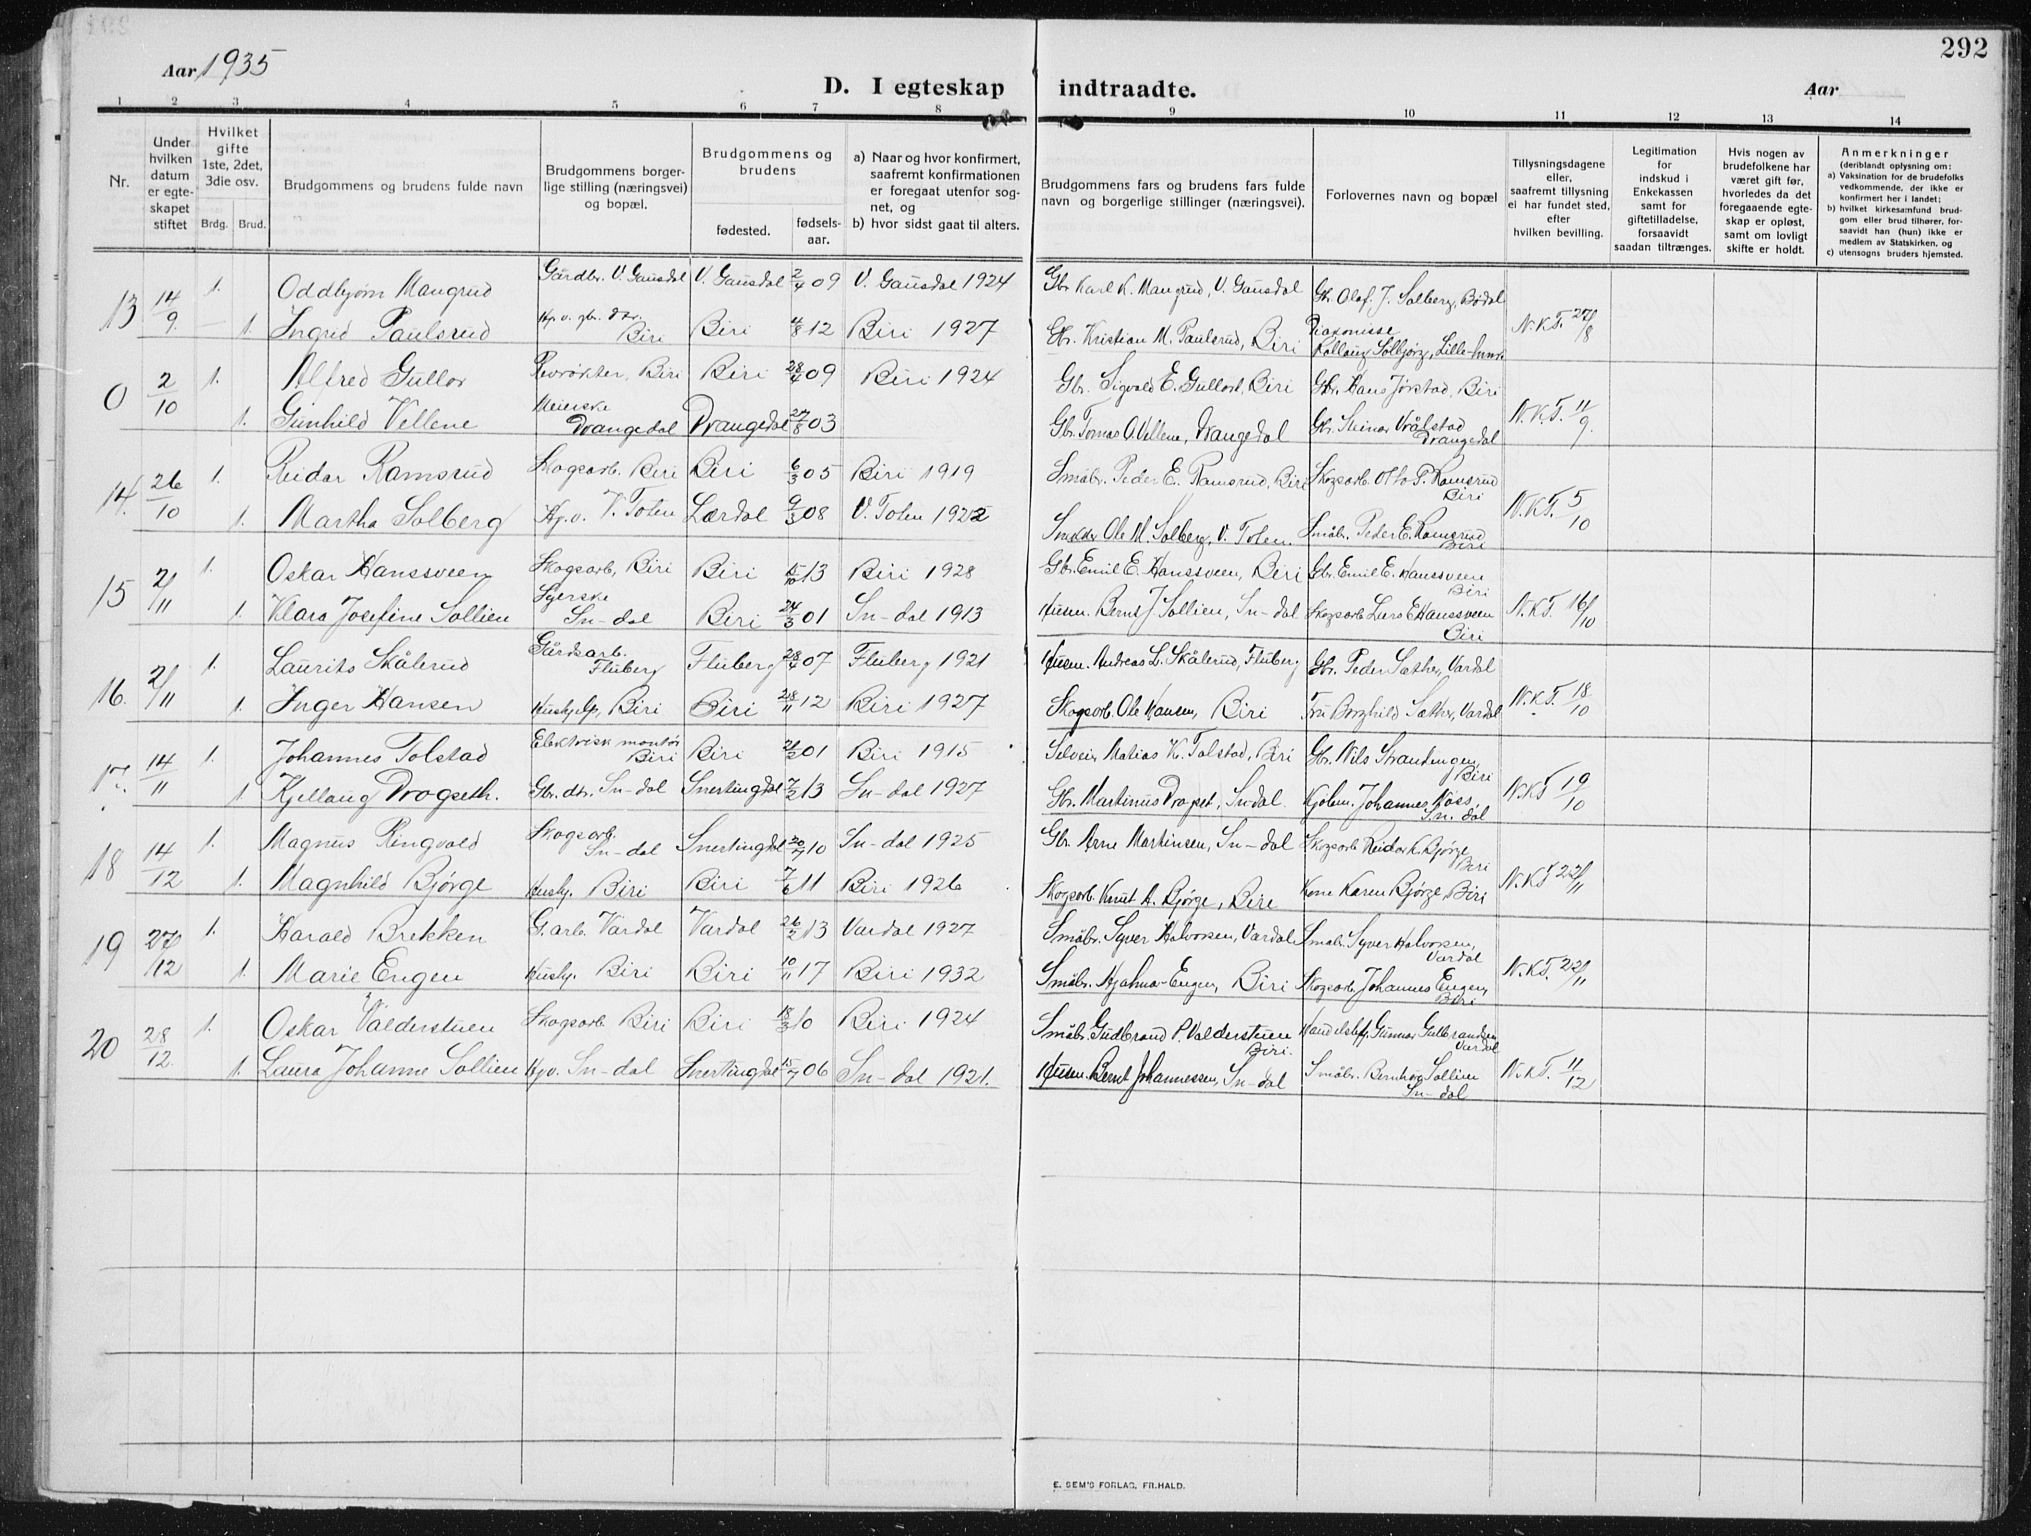 292
Aar 1935
D. I egteskap indtraadte.
Aar
1 2 3 4 5 6 7 8 9 10 11 12 13 14
Nr.
Under hvilken datum er egteskapet stiftet
Hvilket gifte 1ste, 2det, 3die osv.
Brdg. Brud.
Brudgommens og brudens fulde navn
Brudgommens borgerlige stilling (næringsvei) og bopæl.
Brudgommens og brudens
fødested.
fødselsaar.
a) Naar og hvor konfirmert, saafremt konfirmationen er foregaat utenfor sognet, og
b) hvor sidst gaat til alters.
Brudgommens fars og brudens fars fulde navn og borgerlige stillinger (næringsvei).
Forlovernes navn og bopæl
Tillysningsdagene eller, saafremt tillysning ei har fundet sted, efter hvilken bevilling.
Legitimation for indskud i Enkekassen samt for giftetilladelse, forsaavidt saadan tiltrænges.
Hvis nogen av brudefolkene har været gift før, hvorledes da det foregaaende egteskap er opløst, samt om lovligt skifte er holdt.
Anmerkninger
(deriblandt oplysning om:
a) Vaksination for de brudefolks vedkommende, der ikke er konfirmert her i landet;
b) hvilket kirkesamfund brudgom eller brud tilhører, forsaavidt han (hun) ikke er medlem av Statskirken, og
c) utensogns bruders hjemsted.
13 14/9 1. Oddbjørn Maugrud Gårdbr. V. Gausdal V. Gausdal 2/4 09 V. Gausdal 1924 Gbr Karl K. Maugrud, V. Gausdal Gbr. Olaf J. Solberg, Bødal
1. Ingrid Paulsrud Hp. v. gbr. dtr. Biri Biri 4/8 12 Biri 1927 Gbr. Kristian M. Paulsrud, Biri Diakonisse Solbjørg, Lillehmr. N.K.T. 27/8
0 2/10 1. Alfred Gullor Revrøkter, Biri Biri 28/4 09 Biri 1924 Gbr. Sigvald E. Gullord, Biri Gbr. Hans Jørstad, Biri
1. Gunhild Vellene Meierske Drangedal Drangedal 27/8 03 Gbr. Tomas O. Vellene, Drangedal Gbr. Steinar Vrålstad Drangedal N.K.T. 11/9
14. 26/10 1. Reidar Ramsrud Skogsarb. Biri Biri 6/3 05 Biri 1919 Småbr. Peder E. Ramsrud, Biri Skogsarb. Otto P. Ramsrud Biri
1. Martha Solberg Hp. v. V. Toten Lærdal 9/3 08 V. Toten 1922 Smeder Ole M. Solberg, V. Toten Småbr. Peder E. Ramsrud Biri N.K.T. 5/10
15 2/11 1. Oskar Hanssveen Skogsarb, Biri Biri 15/10 13 Biri 1928 Gbr. Emil E. Hanssveen, Biri Gbr. Emil E. Hanssveen Biri
1. Klara Josefine Sollien Syerske Sn-dal Biri 24/3 01 Sn-dal 1913 Husm. Bernt J. Sollien, Sn-dal Skogsarb. Lars E Hanssveen Biri N.K.T. 16/10
16. 2/11 1. Laurits Skålerud Gårdsarb. Fluberg Fluberg 28/4 07 Fluberg 1921 Husm. Andreas L. Skålerud, Fluberg Gbr. Peder Sæther, Vardal
1. Inger Hansen Hushjelp, Biri Biri 28/11 12 Biri 1927 Skogsarb. Ole Hansen, Biri Fru Borghild Sæther, Vardal N.K.T. 18/10
17. 14/11 1. Johannes Tolstad Elektrisk montør Biri Biri 01 Biri 1915 Selveier Matias K. Tolstad, Biri Gbr. Nils Strandengen Biri
1. Kjellaug Drogseth. Gbr. dtr. Sn-dal Snertingdal 7/2 13 Sn-dal 1927 Gbr. Martinus Dragset, Sn-dal. Kjøbm. Johannes Næss Sn. dal N.K.T 19/10
18 14/12 1. Magnus Ringvold Skogsarb. Sn-dal Snertingdal 20/7 10 Sn-dal 1925 Gbr. Arne Martinsen, Sn-dal Skogsarb Reidar K. Bjørge Biri
1. Magnhild Bjørge Hushj. Biri Biri 7/6 11 Biri 1926 Skogsarb. Knut A. Bjørge, Biri Kone Karen Bjørge, Biri N.K.T 22/11
19 27/12 1. Harald Brekken G. arb. Vardal Vardal 26/2 13 Vardal 1927 Småbr. Syver Halvorsen, Vardal Småbr. Syver Halvorsen, Vardal
1. Marie Engen Hushj. Biri Biri 10/11 17 Biri 1932 Småbr. Hjalmar Engen, Biri Skogsarb. Johannes Engen, Biri N.K.T. 22/11
20 28/12. 1. Oskar Valderstuen Skogsarb. Biri Biri 18/3 10 Biri 1924 Småbr. Gudbrand P. Valderstuen Biri. Handelsbef. Gunnar Gulbrandsen Vardal
1. Laura Johanne Sollien Hp v. Sn-dal Snertingdal 15/7 06 Sn-dal 1921. Husm. Bernt Johannessen, Sn-dal Småbr. Bernhard Sollien Sn-dal N.K.T. 11/12
E. SEM'S FORLAG, FR.HALD.